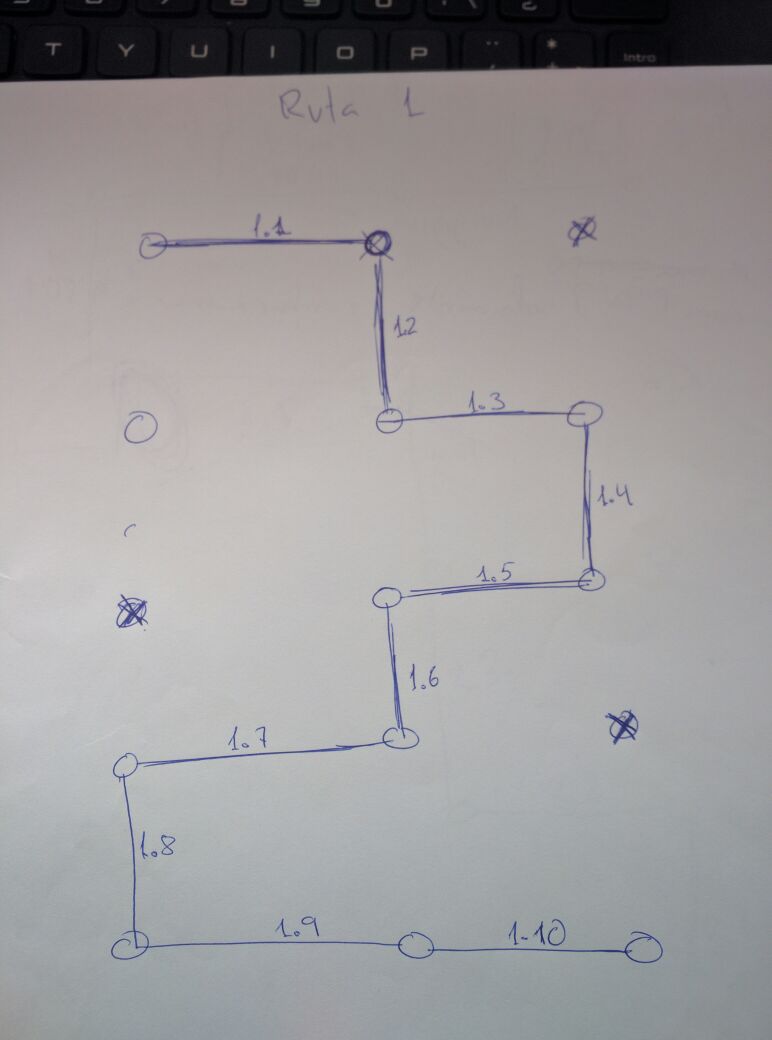 T Y U I O P
Intro
Ruta 1
1.1
1.2
1.3
1.4
1.5
1.6
1.7
1.8
1.9
1.10